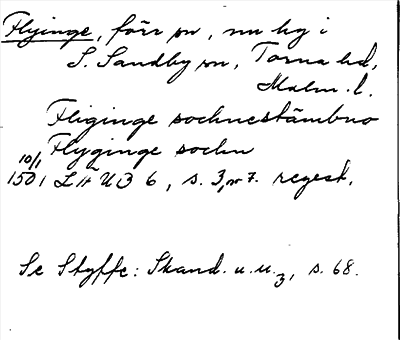 Flyinge, förr sn, nu by i
S. Sandby sn, Torna hd,
Malm. l.
Fliginge sochnestämbno
Flyginge sochn
10/1 1501 LÄUB 6, s. 3, nr 7. regest.
Se Styffe: Skand. u. u. 3, s. 68.